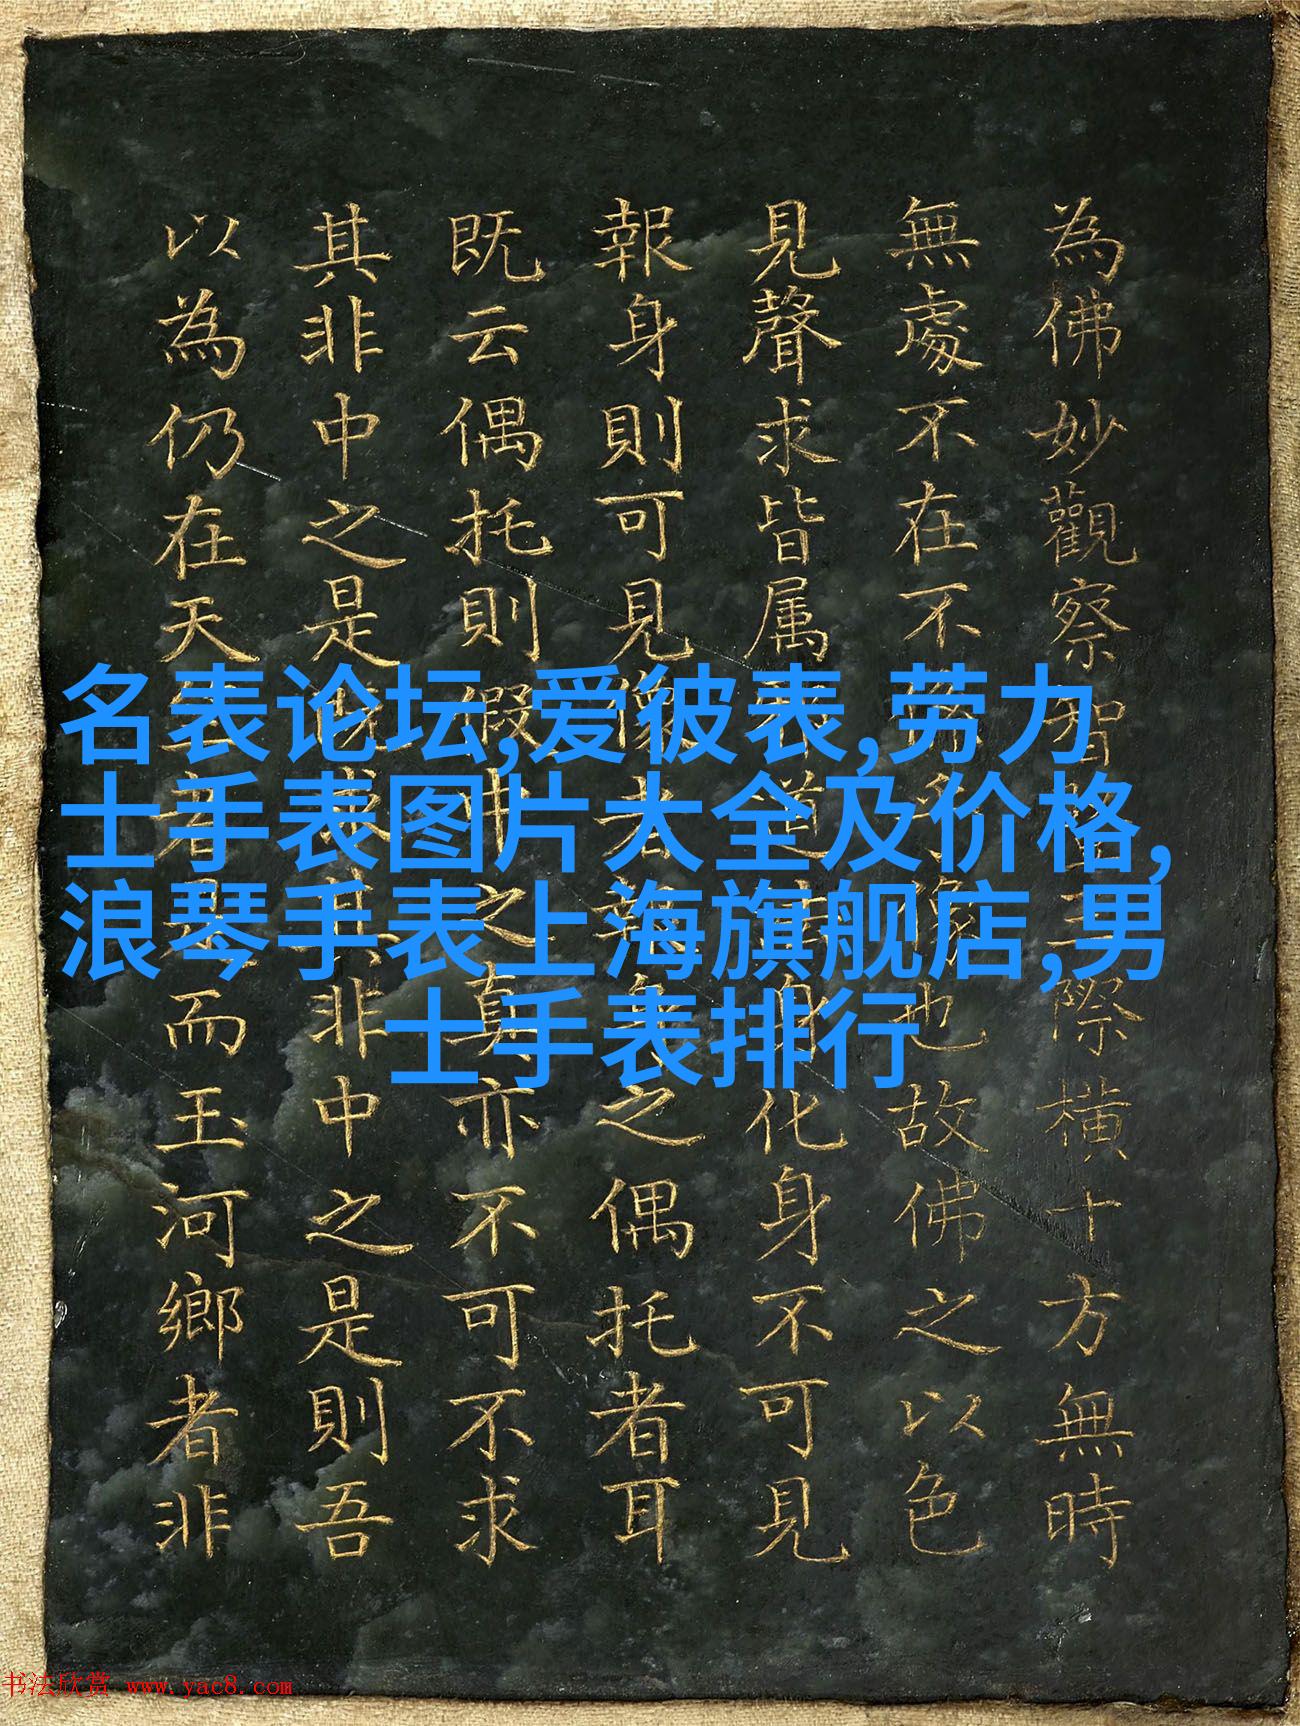 名表论坛,爱彼表,劳力
士手表图片大全及价格,
浪琴手表上海旗舰店,男
士手表排行
為佛妙觀察智三際橫十方無時
無處不在不像也故佛之以色
見聲求皆属道身化身不可見
報身則可見像者身之偶托者耳
既云偶托則假佛之真亦不可不求
其非中之是求其非中之是則吾
以為仍在天者而玉河鄉者非
书法欣赏 www.yac8.com